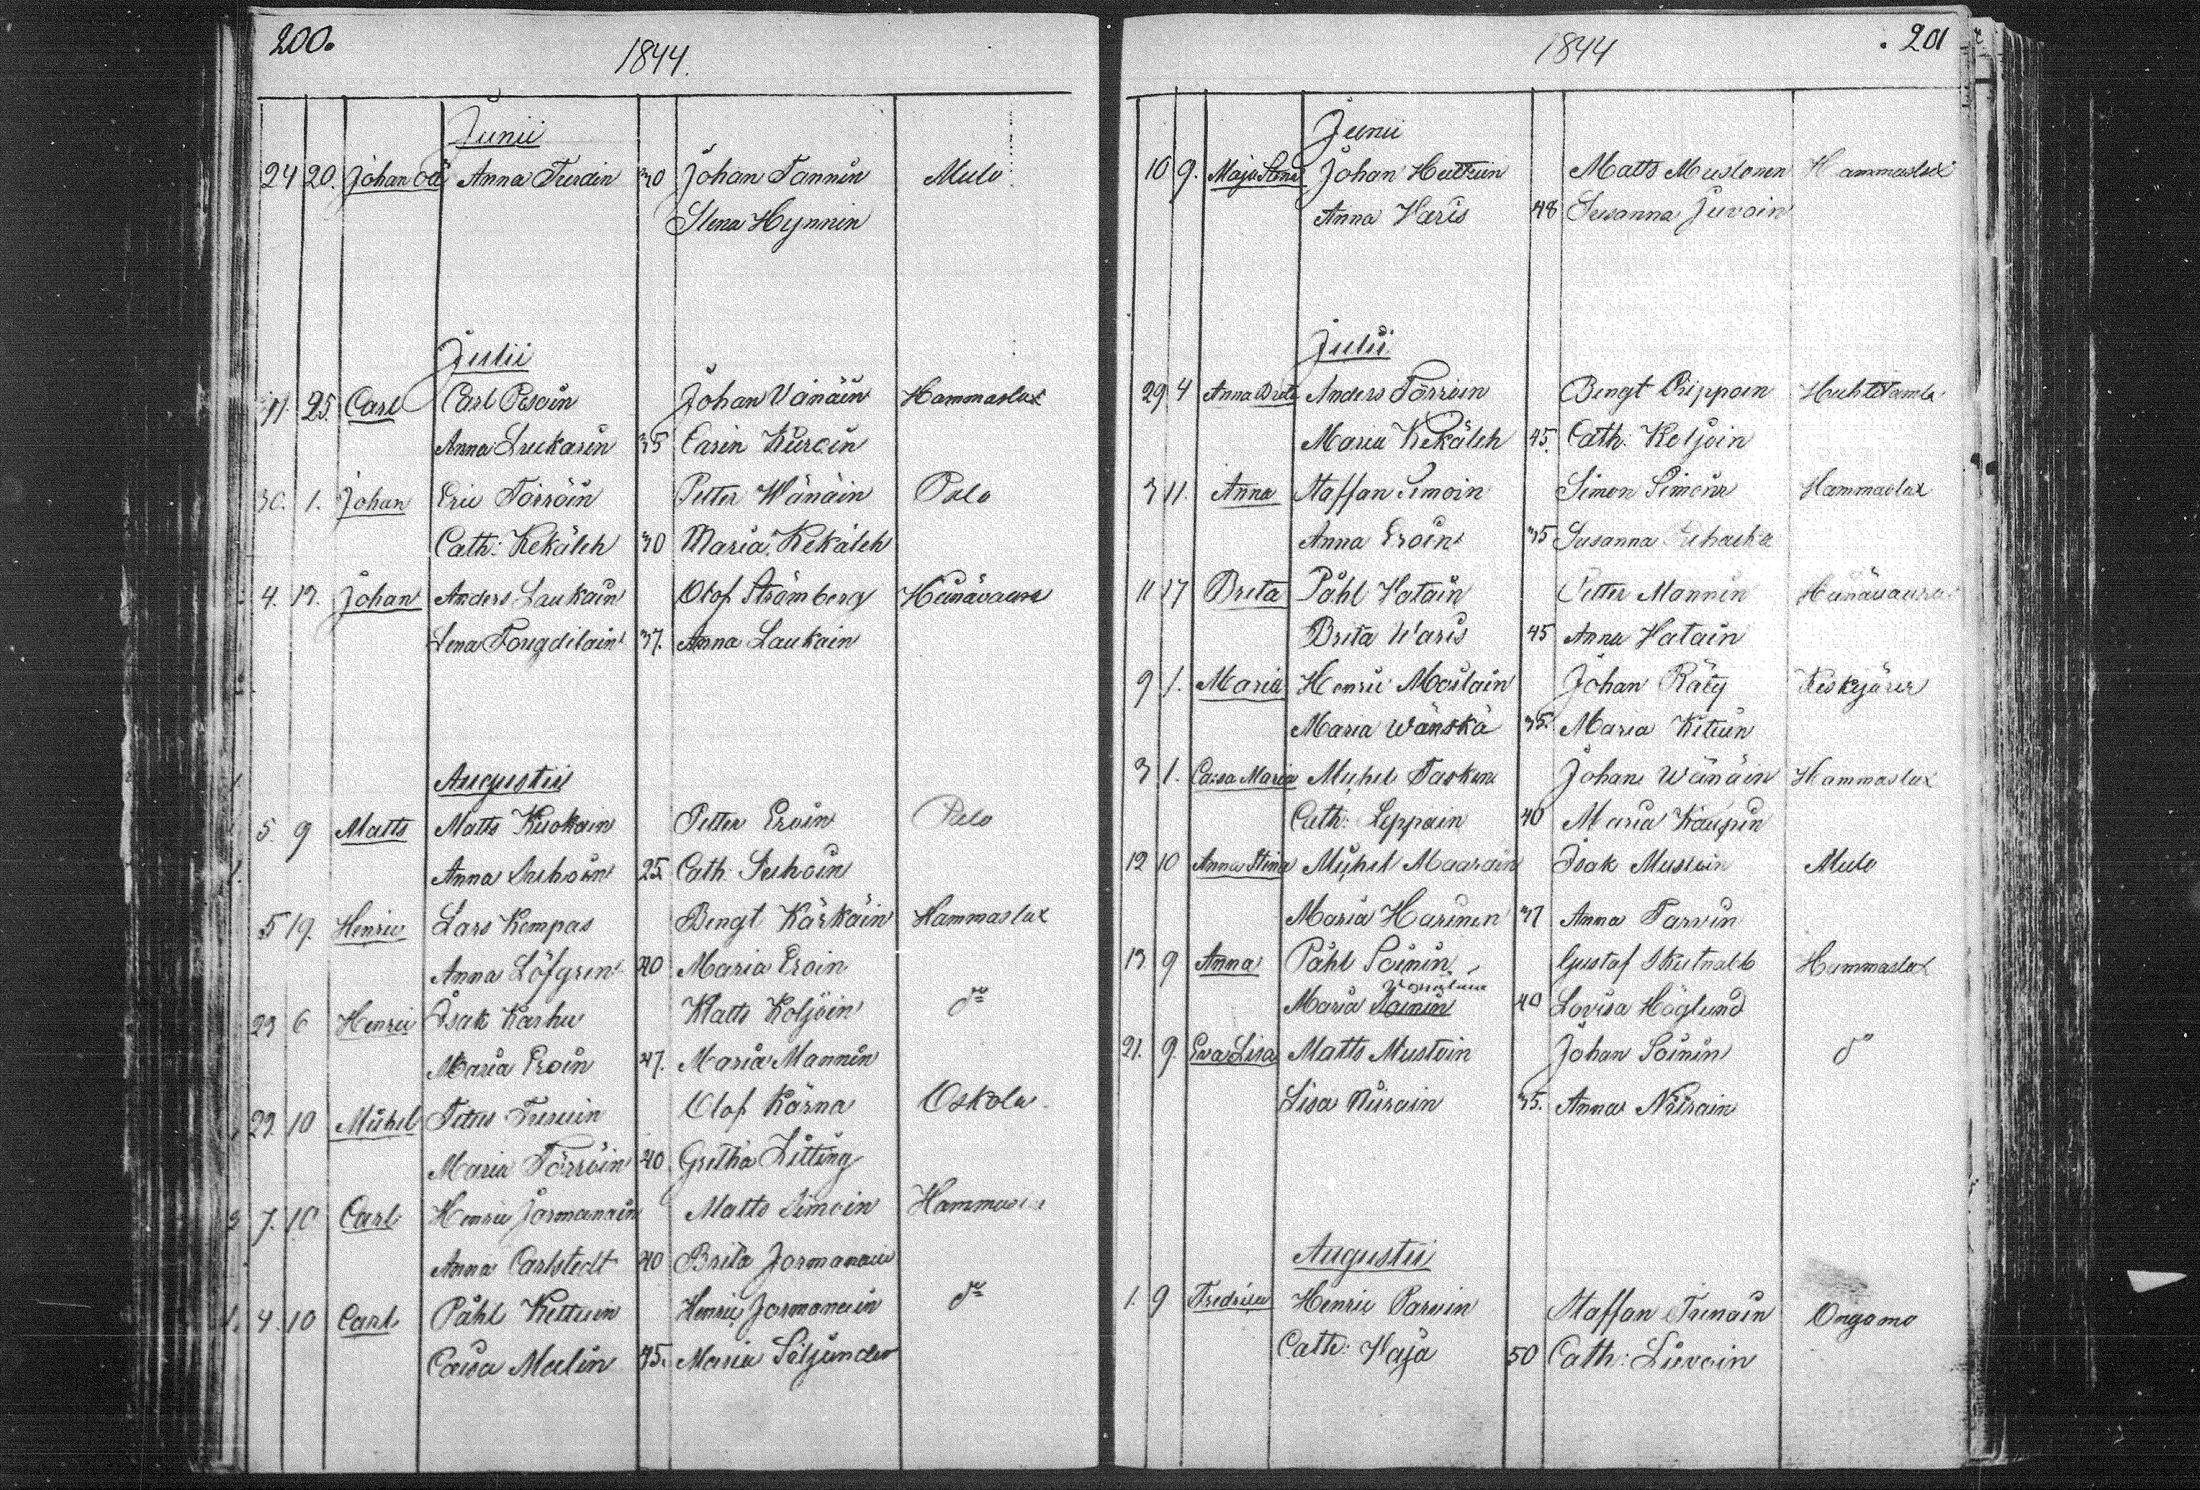 200.
1844.
Junii
24 20. Johan oä Anna Turdin 30 Johan Tannin Mulo
Stena Hynnin
Julii
11. 25. Carl Carl Pesoin Johan Vänäin Hammaslax
Anna Luukarin 35 Carin Kurcin
30. 1. Johan Eric Törröin Petter Wänäin Polo
Cath: Kekäleh 30 Maria Kekäleh
4. 12. Johan Anders Laukain Olof Strömberg
Lena 37. Anna Laukain
Augustii
5. 9 Matts Matts Kuokain Petter Eroin
Anna Suhoin 25 Cath: Suhoin
5 19. Henric Lars Kempas Bengt Kärkäin Hammaslax
Anna Löfgren 40 Maria Eroin
23 6 Henric Isak Karhu Matts Koljoin do
Maria Eroin 47. Maria Mannin
22. 10 Michel Olof Kärna Oskola
Maria Törröin 40 Gretha Litting
7. 10 Carl Henric Jormanain Matts Simoin
Anna Carlstedt 40 Brita Jormanain
4. 10 Carl Påhl Kettuin Henric Jormanain do
Caisa Malin 45. Maria Siljander
1844
201
Junii
10 9. Maja Stena Johan Huttuin Matts Mustonen Hammaslax
Anna Varis 48 Susanna Juvoin
Julii
29 4 Anna Brita Anders Törröin Bengt Huhtilamba
Maria Kekäleh 45. Cath: Koljoin
3 11. Anna Staffan Simoin Simon Simoin Hammaslax
Anna Eroin 35 Susanna
11 17 Brita Påhl Vatain Petter Mannin
Brita Waris 45 Anna Vatain
9 1. Maria Henric Johan Räty Keskijärvi
Maria Wänskä 35. Maria
3 1. Caisa Maria Michel Taskin Johan Wänäin Hammaslax
Cath: Leppain 40 Maria Kaupin
12 10 Anna Stina Michel Maarain Isak Mustoin Mulo
Maria Harinen 37 Anna Tarvin
13 9 Anna Påhl Soinin Gustaf Skutnabb Hammaslax
Maria Soinin 40 Lovisa Höglund
21. 9. Eva Lisa Matts Mustoin Johan Soinin do
Lisa 35. Anna
Augustii
1. 9 Fredrica Henric Parvin Staffan Ongamo
Cath: Kaja 50 Cath: Sivoin